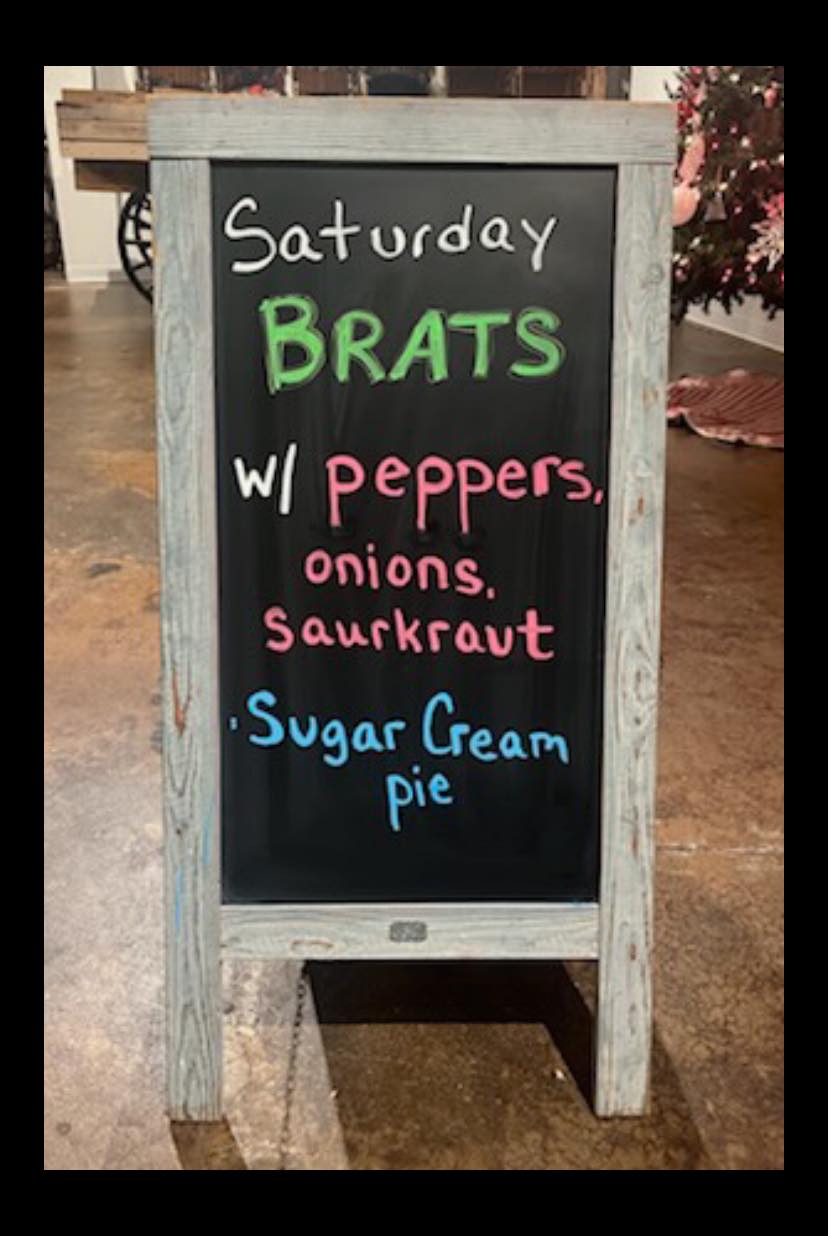 Saturday
BRATS
w/ peppers,
onions,
saurkraut
·Sugar Cream
pie